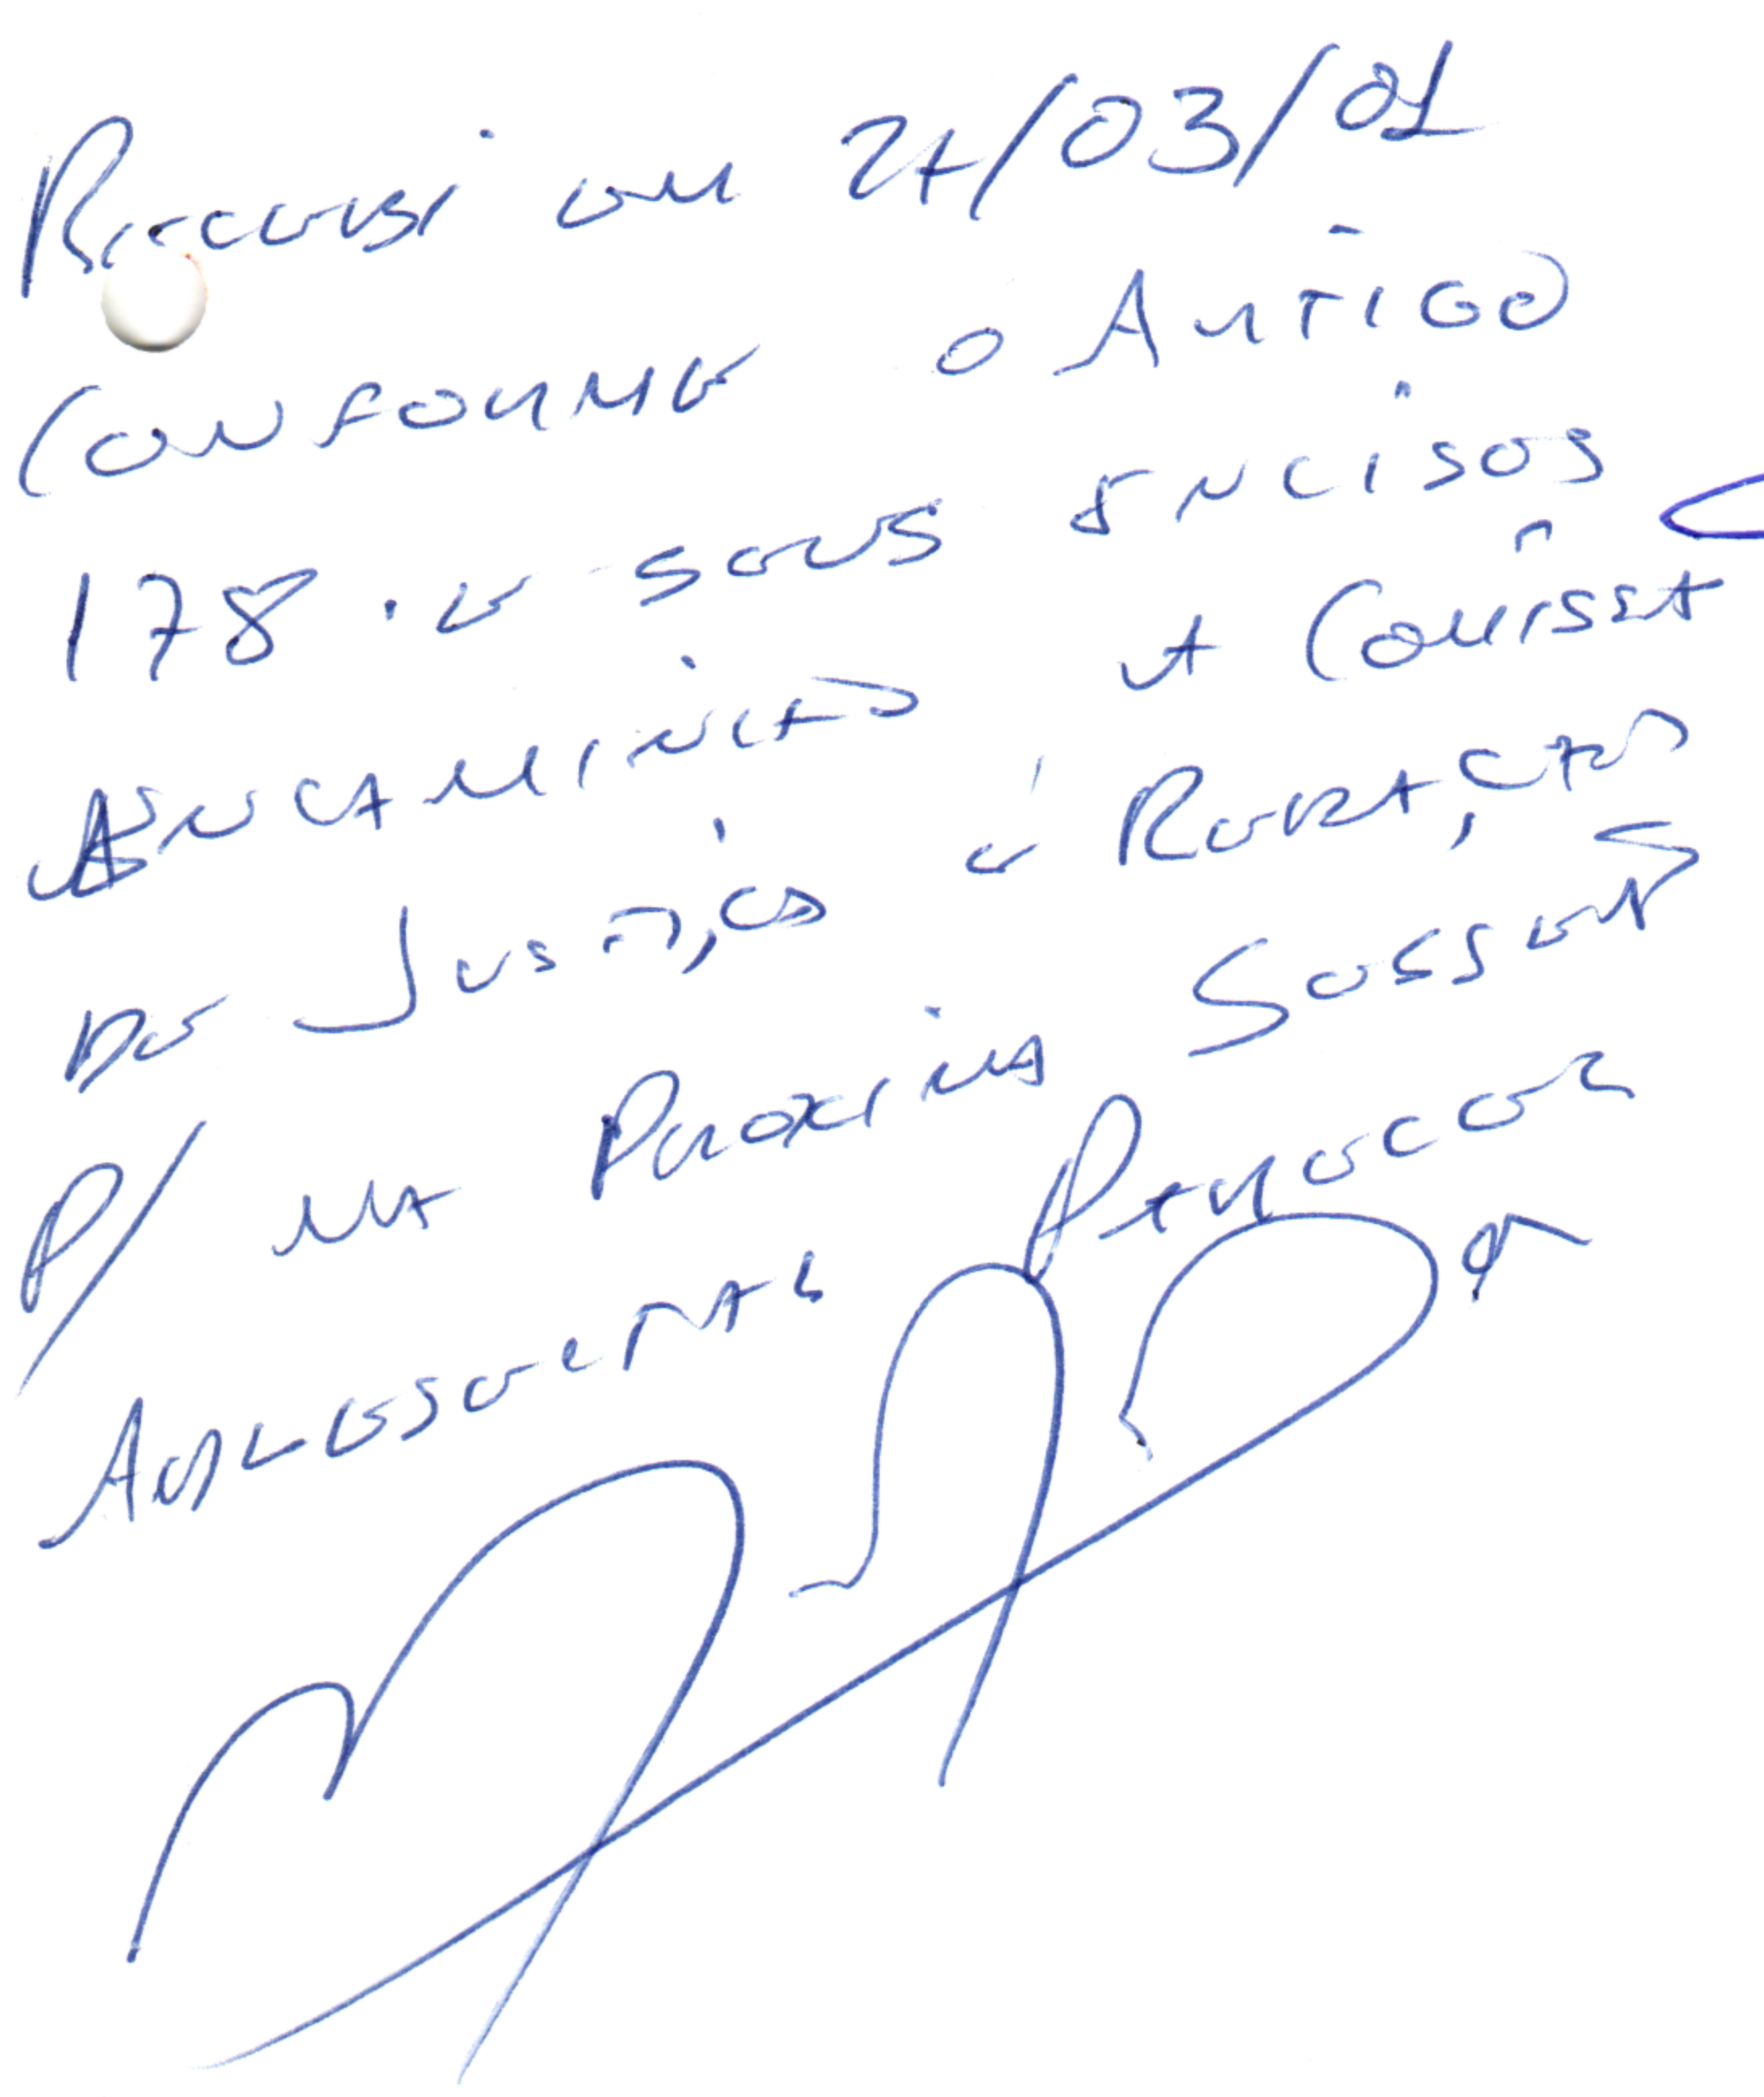 Recebi em 24/03/01
Conforme o Artigo
178. e seus Encisos
Encaminho a Comissã
De Justiça e Redação
P/ na Proxima Sessão
Apresentar Parecer